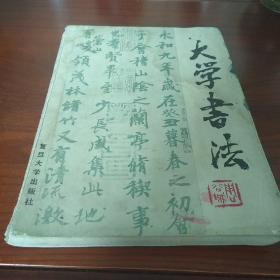 大学书法
永和九年岁在癸丑暮春之初会
于会稽山阴之兰亭脩稧事
也群贤毕至少长咸集此地
有
峻领茂林脩竹又有清流激
崇山
复旦大学出版社